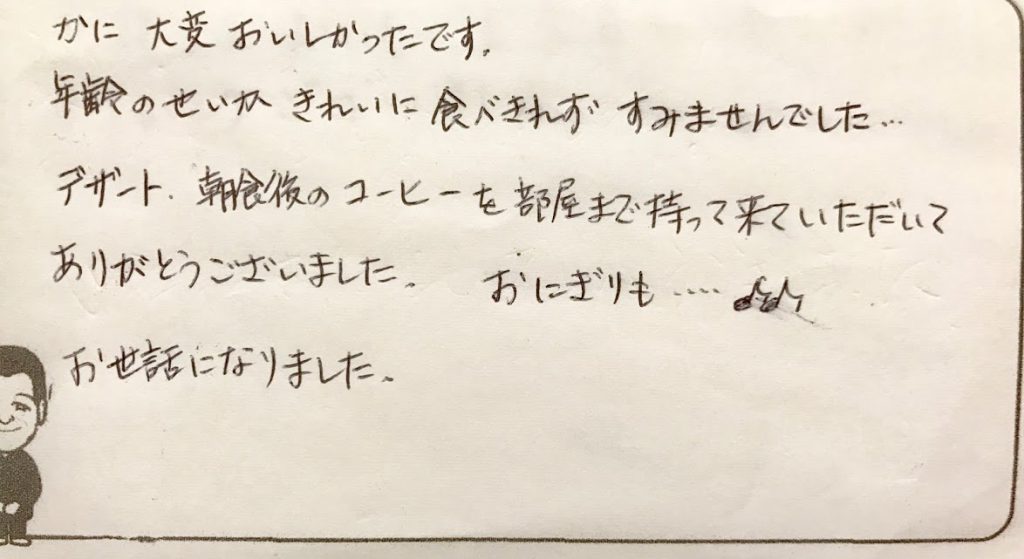 かに 大変 おいしかったです。
年齢のせいか きれいに 食べきれず すみませんでした…
デザート、朝食後の コーヒーを 部屋まで 持って来ていただいて
ありがとうございました。 おにぎりも ‥‥ ♪♪
お世話になりました。